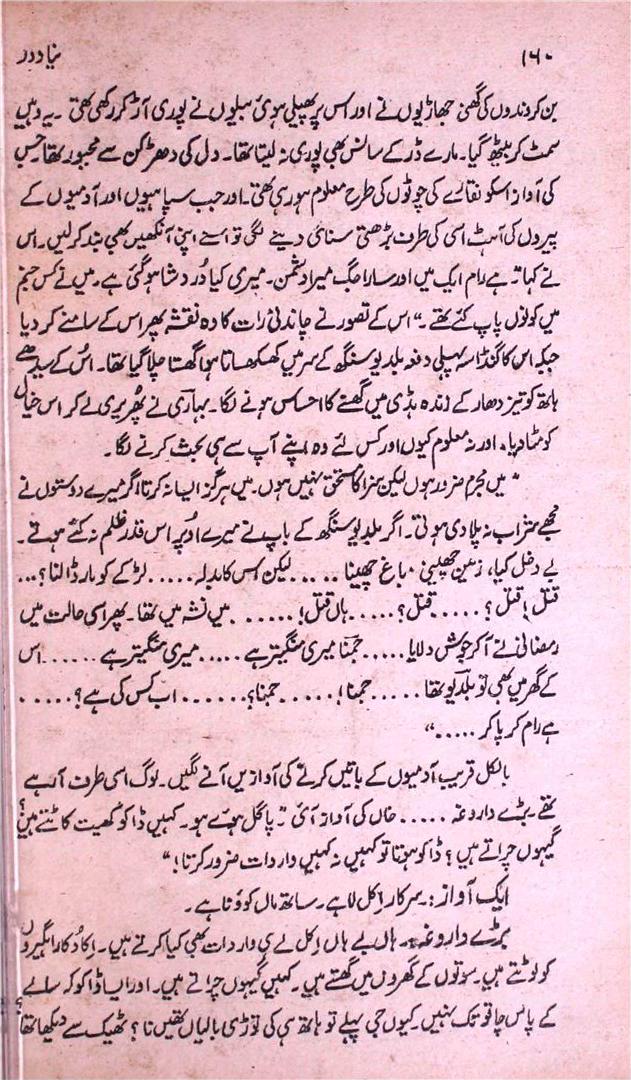 ۱۶۰ نیا دور
بن کروندوں کی گھنی جھاڑیوں نے اور اس پر پھیلی ہوئی بیلوں نے پوری آڑ کر رکھی تھی ۔ یہ وہیں
سمٹ کر بیٹھ گیا۔ مارے ڈر کے سانس بھی پوری نہ لیتا تھا۔ دل کی دھڑکن سے مجبور تھا جس
کی آواز اسکو نقارے کی چوٹوں کی طرح معلوم ہو رہی تھی۔ اور جب سپاہیوں اور آدمیوں کے
پیروں کی آہٹ اسی کی طرف بڑھتی سنائی دینے لگی تو اسنے اپنی آنکھیں بھی بند کر لیں۔ اس
نے کہا "ہے رام ایک میں اور سارا جگ میرا دشمن۔ میری کیا دُر دشا ہو گئی ہے۔ میں نے کس جنم
میں کونوں پاپ کئے تھے۔" اس کے تصور نے چاندنی رات کا وہ نقشہ پھر اس کے سامنے کر دیا
جبکہ اس کا گنڈاسہ پہلی دفعہ بلدیو سنگھ کے سر میں کھسکھساتا ہوا گھستا چلا گیا تھا۔ اُس کے سیدھے
ہاتھ کو تیز دھار کے زندہ ہڈی میں گھسنے کا احساس ہونے لگا۔ بہاری نے پھُریری لے کر اس خیال
کو مٹا دیا۔ اور نہ معلوم کیوں اور کس لئے وہ اپنے آپ سے ہی بحث کرنے لگا۔
"میں مجرم ضرور ہوں لیکن سزا کا مستحق نہیں ہوں۔ میں ہرگز ایسا نہ کرتا اگر میرے دوستوں نے
مجھے شراب نہ پلا دی ہوتی۔ اگر بلدیو سنگھ کے باپ نے میرے اوُپر اس قدر ظلم نہ کئے ہوتے۔
بے دخل کیا، زمین چھینی ۔ باغ چھینا ..... لیکن اس کا بدلہ ..... لڑکے کو مار ڈالنا؟...
قتل! قتل؟ ..... قتل؟ ..... ہاں قتل! ...... میں نشہ میں تھا۔ پھر اسی حالت میں
رمضانی نے آ کر جوش دلایا ..... جمنا میری منگیتر ہے ..... میری منگیتر ہے ...... اس
کے گھر میں بھی تو بلدیو تھا ..... جمنا! ..... جمنا؟ ...... اب کس کی ہے؟ .....
ہے رام کرپا کر ....."
بالکل قریب آدمیوں کے باتیں کرنے کی آوازیں آنے لگیں۔ لوگ اسی طرف آ رہے
تھے ۔ بڑے داروغہ ..... خاں کی آواز آئی "پاگل ہوئے ہو۔ کہیں ڈاکو کھیت کاٹتے ہیں؟
گیہوں چراتے ہیں؟ ڈاکو ہوتا تو کہیں نہ کہیں واردات ضرور کرتا!"
ایک آواز:۔ سرکار اکل لا ہے۔ ساتھ ماں کو وُنا ہے۔
بڑے داروغہ۔ ہاں بے ہاں اکل لے ہی واردات بھی کیا کرتے ہیں۔ اِکا دُکا راہگیروں
کو لوٹتے ہیں۔ سوتوں کے گھروں میں گھستے ہیں۔ کہیں گیہوں چراتے ہیں۔ اور ایسا ڈاکو کہ سالے
کے پاس چاقو تک نہیں۔ کیوں جی پہلے تو ہاتھ ہی کی توڑی بالیاں تھیں نا؟ ٹھیک سے دیکھا تھا؟